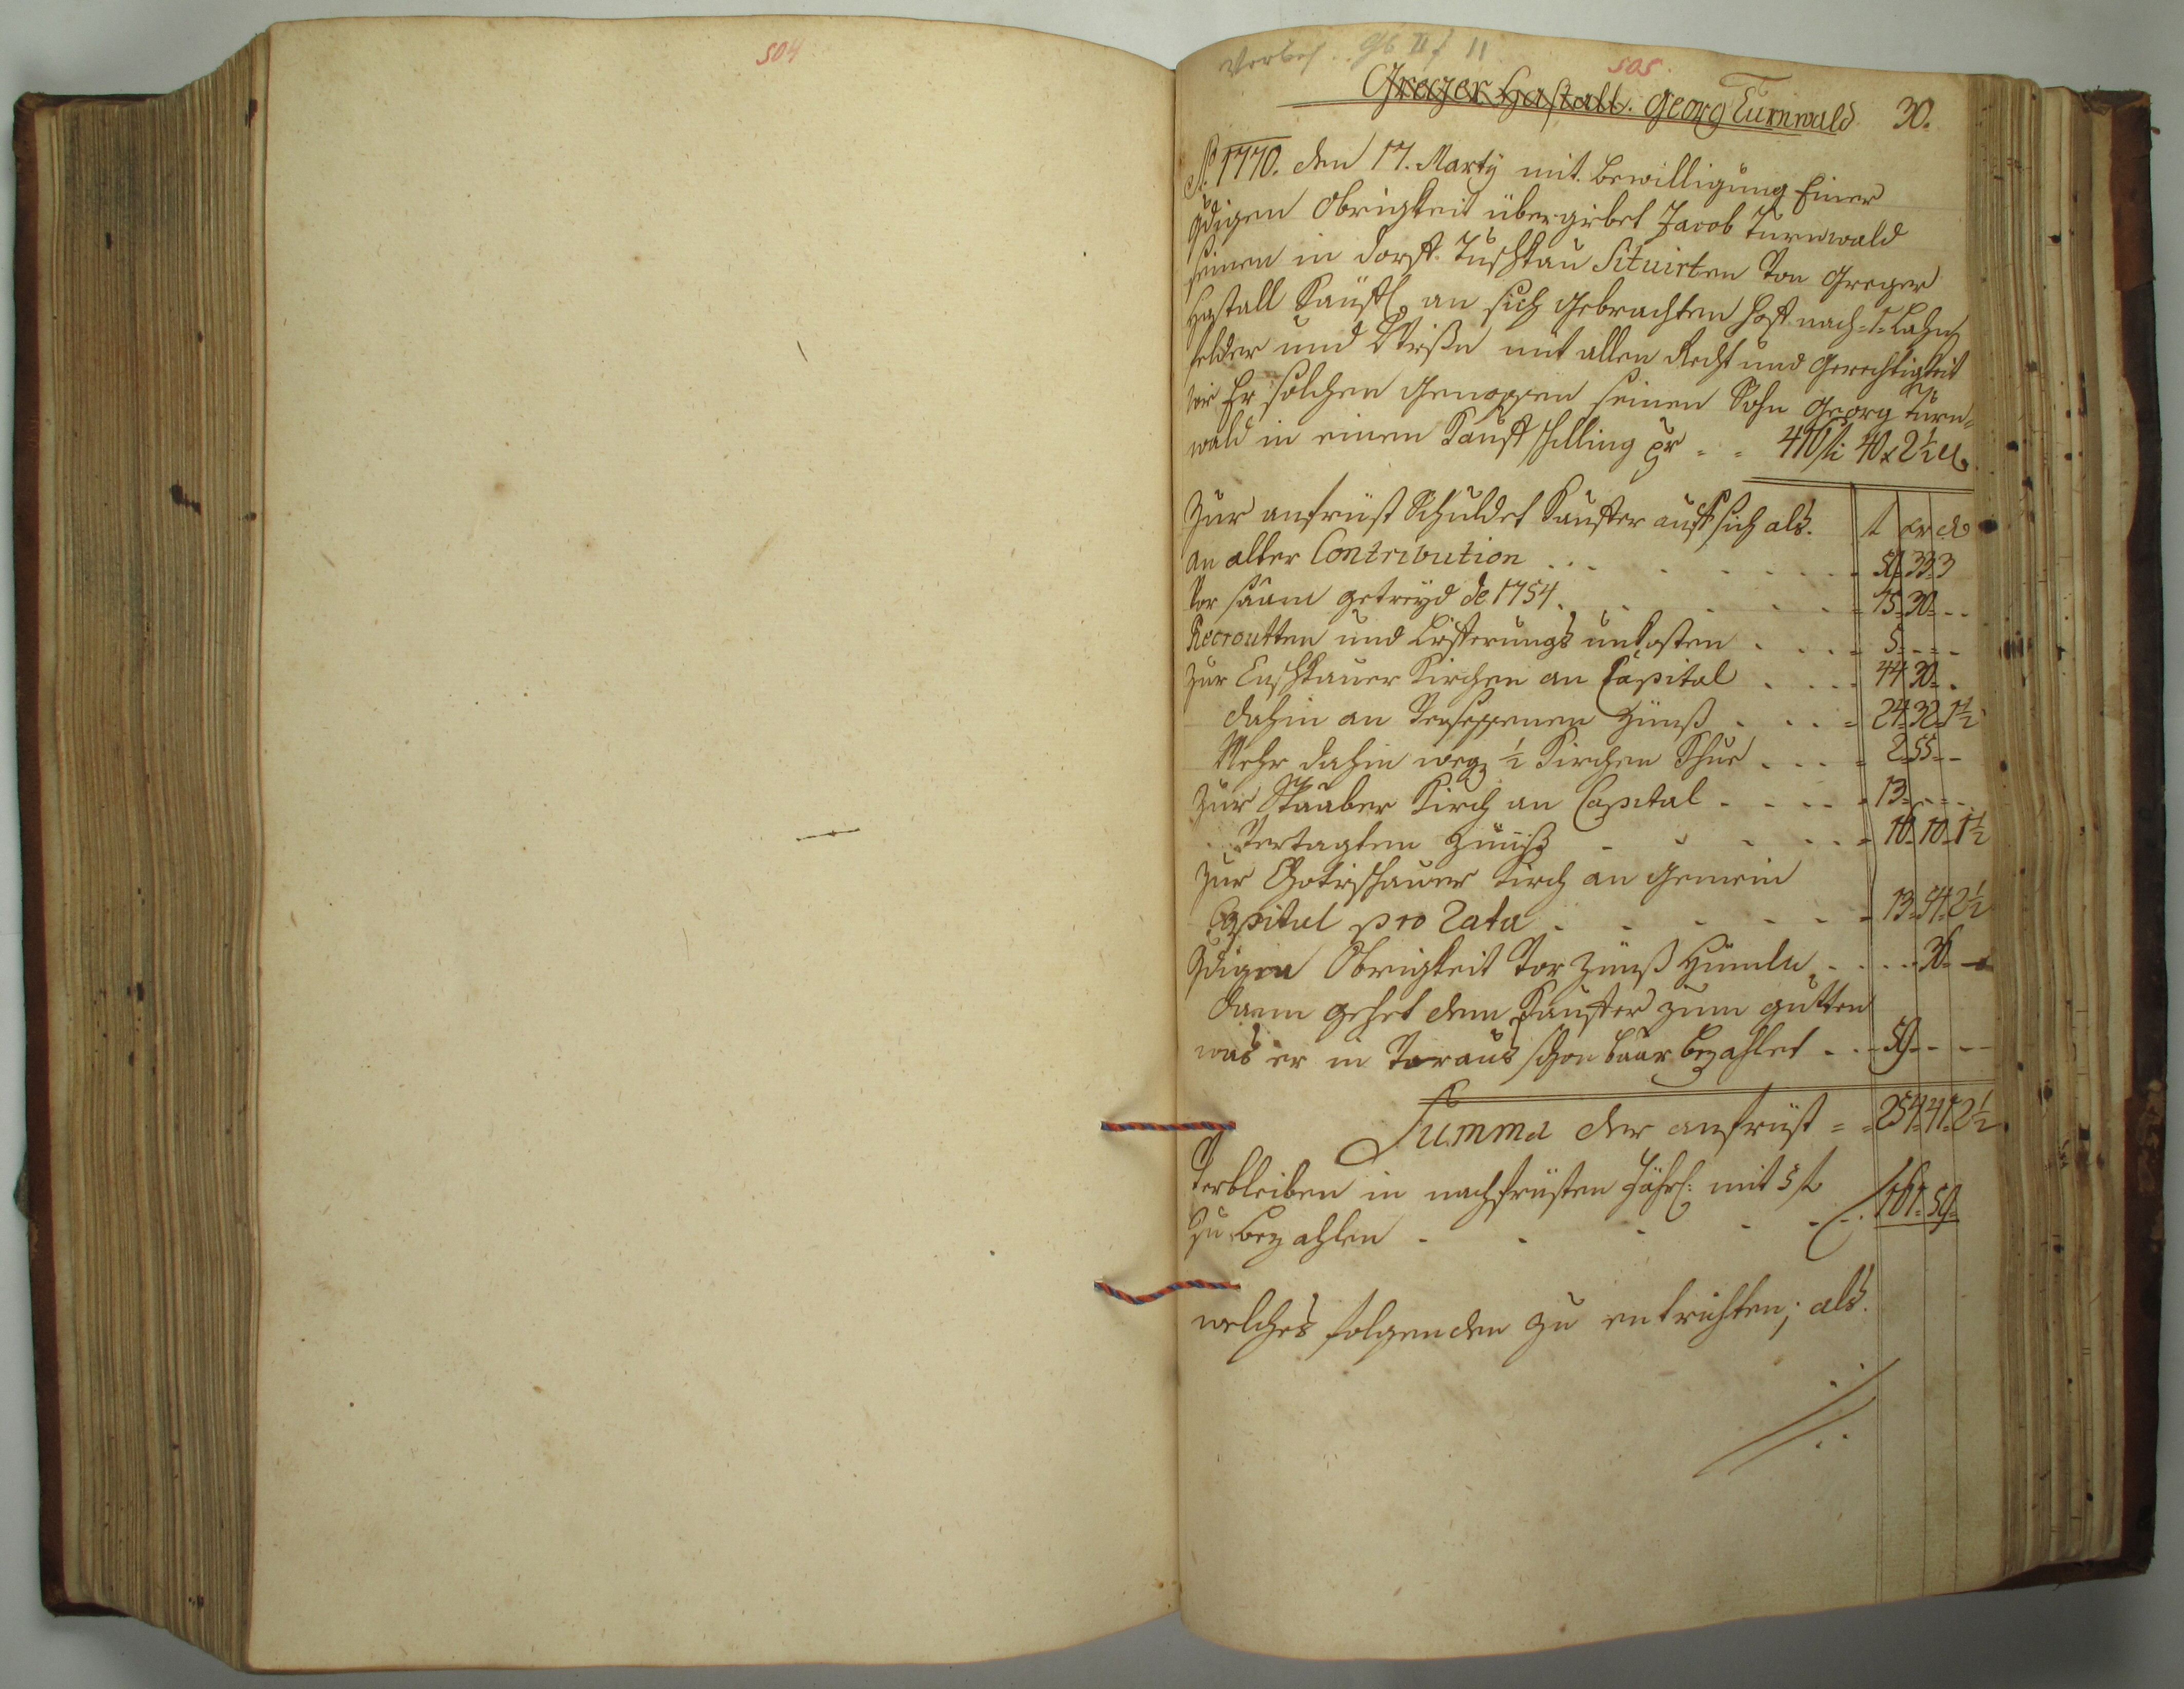 504
Verbes. Gb II f 11
505.
Greger Hastall. Georg Turnwald 30.
Ao. 1770. den 17. Martÿ mit Bewilligung Einer
gdigen Obrigkeit übergiebet Jacob Turnwald
seinen in dorff Tuschkau Situirten von Greger
Hastall Kaüfl. an sich gebrachten Hoff nach
felder und Wießen mit allen Recht und Gerechtigkeit
wie Er solchen genossen seinen Sohn Georg Turn-
wald in einen Kauff schilling pr 40 x 2½ d.
Zur anfrist Schuldet Kauffer auff sich als. f xr d
an alter Contribution 33 3
Vor saam getreyd de 1754. 15 30
Recroutten und Lifferungs unkosten 5
Zur Tuschkauer Kirchen an Capital 44 30
dahin an Versessenen Zünß 24 32 1½
Mehr dahin weg. ½ Kirchen Khue 2 55
Zur Staaber Kirch an Capital 13
Vertagten Zünß 10 10 1½
Zur Chotieschauer Kirch an gemein
Capital pro Rata 13 2½
gdigen Obrigkeit Vor Zünß
dann gehet dem Kauffer zum gutten
was er in Voraus schon baar bezahlet
Summa der anfrist 254 41 2½
Verbleiben in nachfristen Jährl: mit 5 f
zu bezahlen
welches folgenden zu entrichten; als.